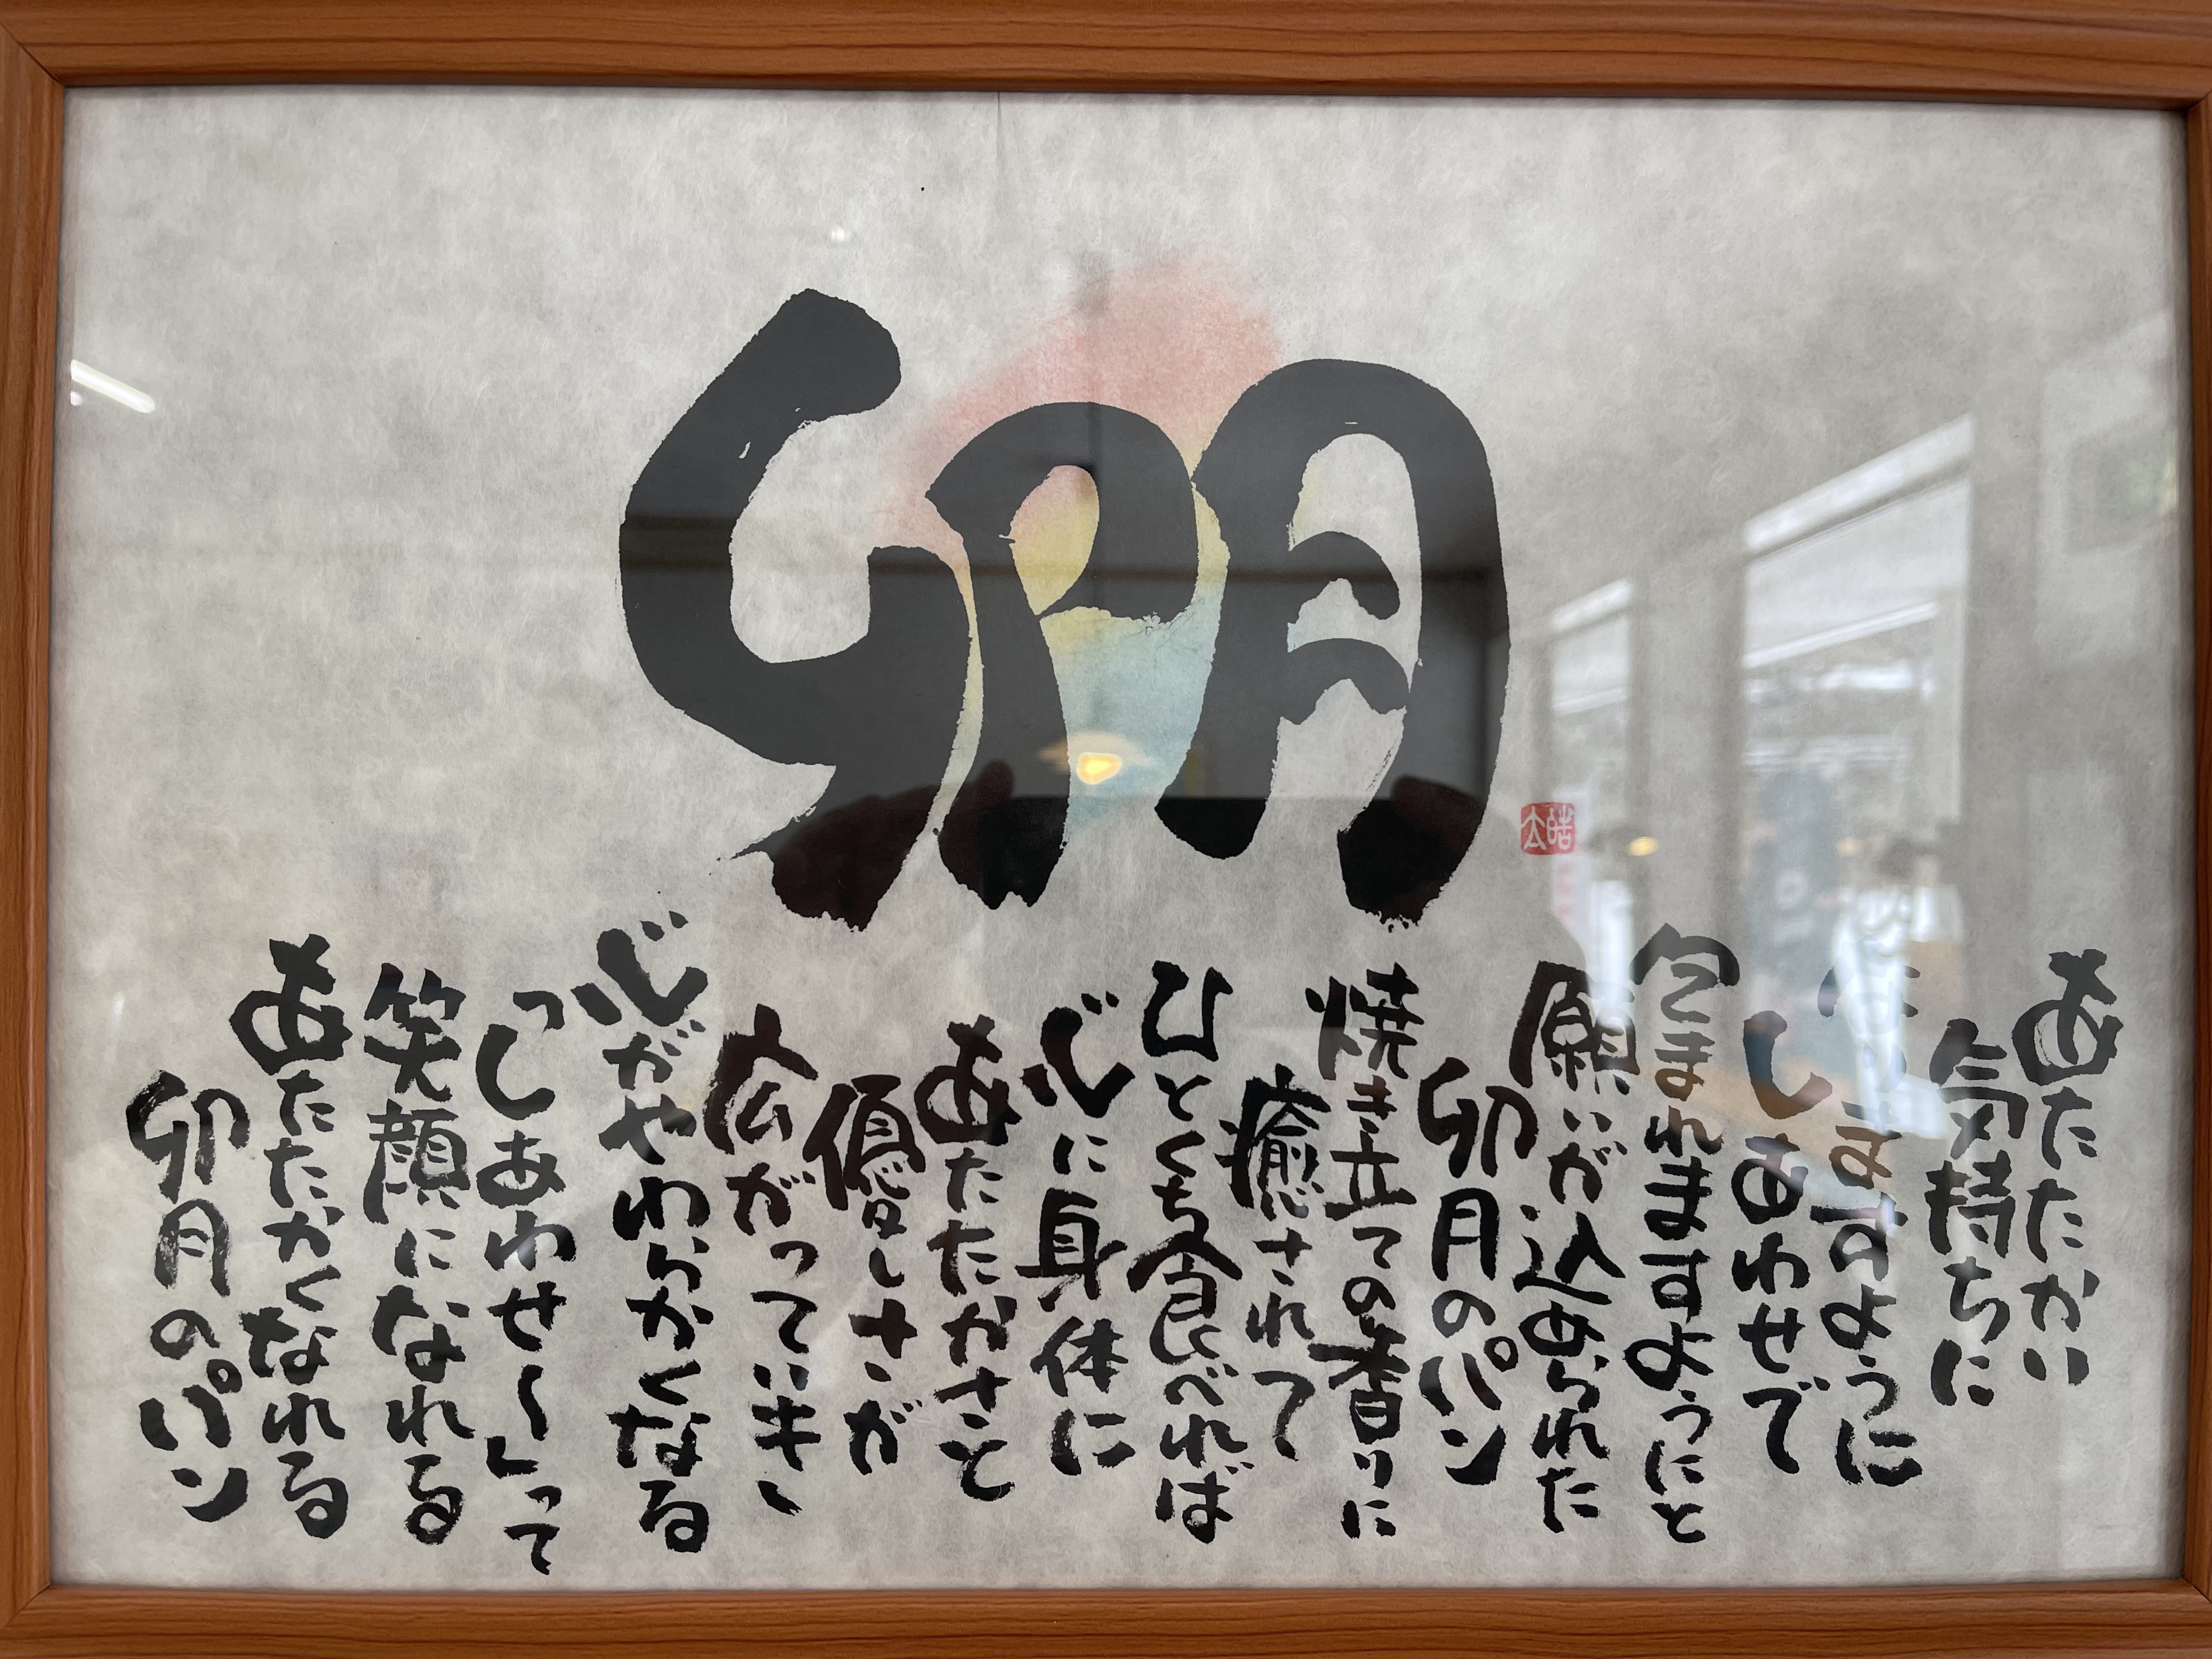 卯月
皓太
あたたかい
気持ちに
なりますように
しあわせで
包まれますようにと
願いが込められた
卯月のパン
焼き立ての香りに
癒されて
ひとくち食べれば
心に身体に
あたたかさと
優しさが
広がっていき、
心がやわらかくなる
「しあわせ〜」って
笑顔になれる
あたたかくなれる
卯月のパン